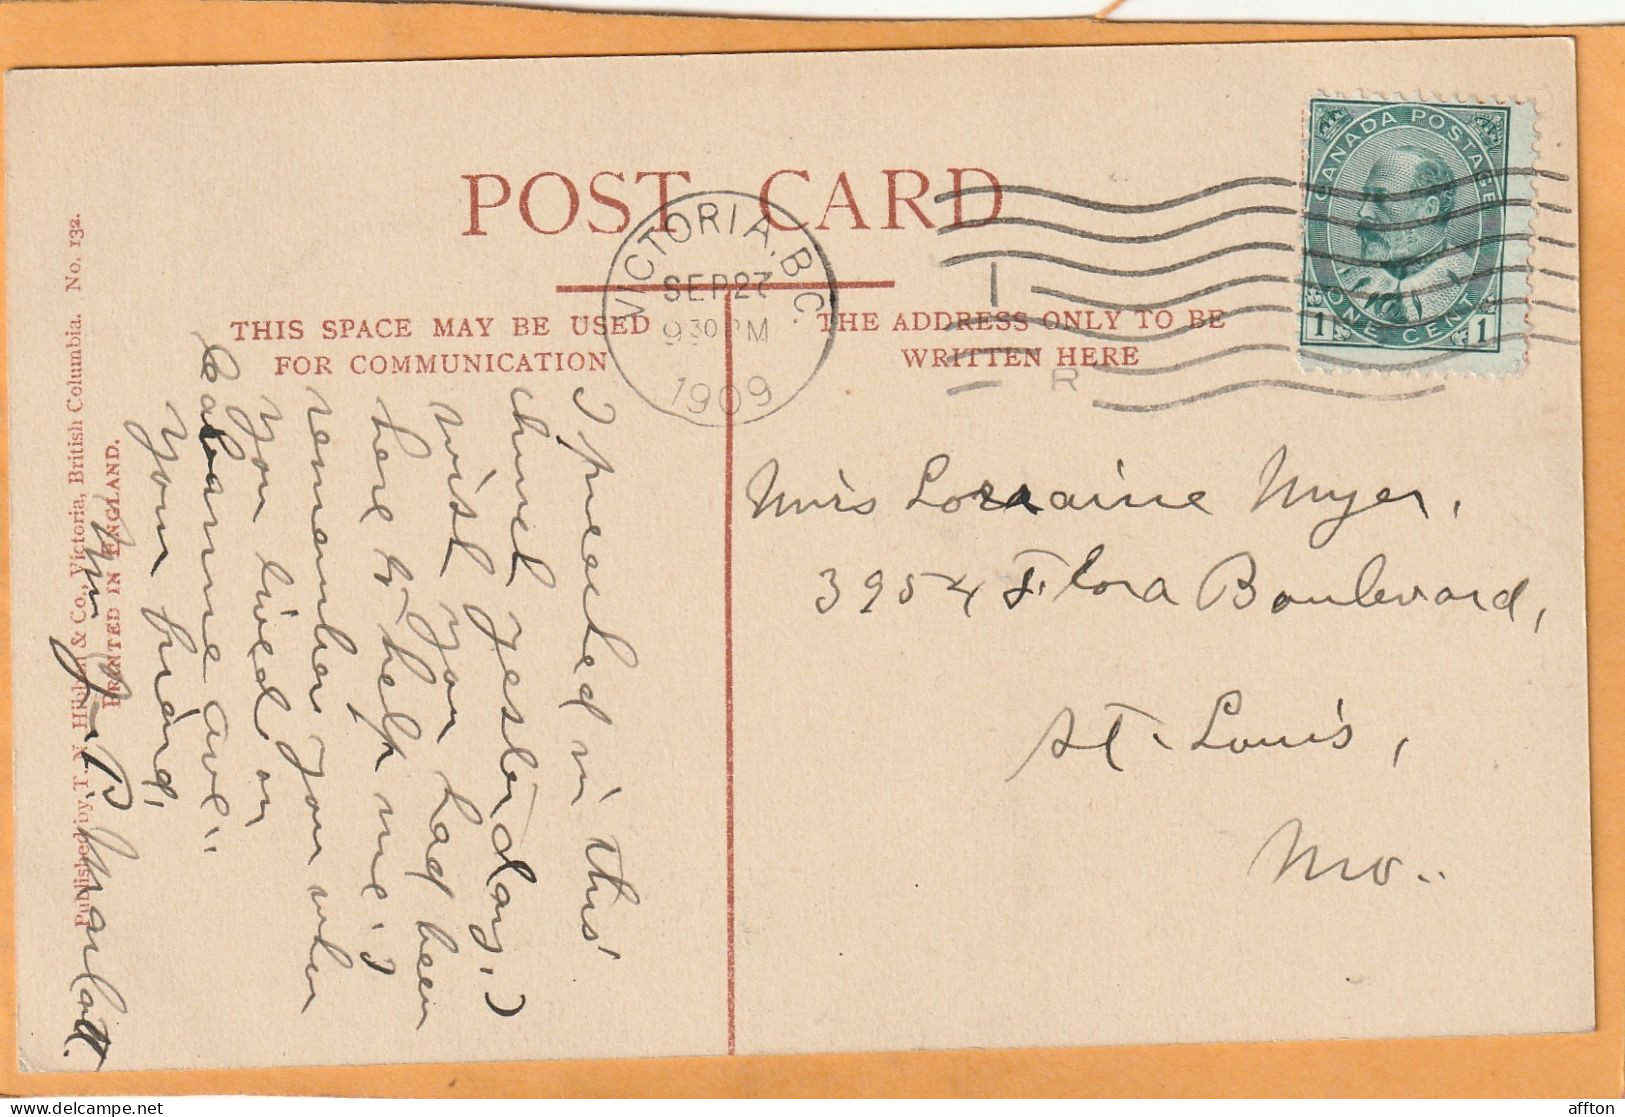 POST CARD
VICTORIA, B.C.
SEP 27
9 30 PM
1909
CANADA POSTAGE
ONE CENT
1 1
THIS SPACE MAY BE USED
FOR COMMUNICATION
THE ADDRESS ONLY TO BE
WRITTEN HERE
R
I preached in this
church yesterday. I
wish you had been
here to help me. I
remember you when
you lived on
ave..
Your friend,
Wm. B. Marlatt.
Miss Lorraine Myer,
3954 Flora Boulevard,
St. Louis,
Mo..
Published by T. N. Hibben & Co., Victoria, British Columbia. No. 132.
PRINTED IN ENGLAND.
affton